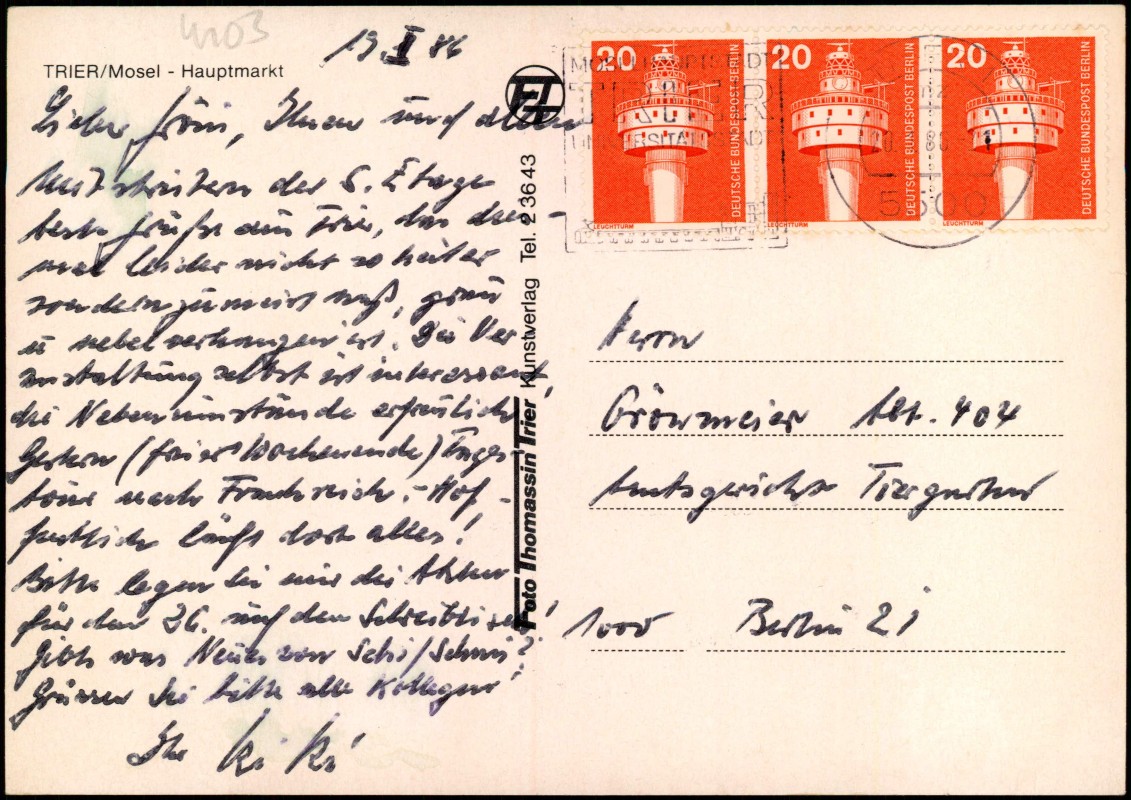 4203
TRIER/Mosel - Hauptmarkt
19 II 86
Lieber Gröni, Ihnen und allen
Mitstreitern der 5. Etage
beste Grüße aus Trier, das dies-
mal leider nicht so heiter
sondern zumeist naß, grau
u nebelverhangen ist. Die Ver
anstaltung selbst ist interessant,
die Nebenumstände erfreulich!
Gestern (freies Wochenende) Tages
tour nach Frankreich. - Hof-
fentlich läuft dort alles!
Bitte legen Sie mir die Akten
für den 26. auf den Schreibtisch!
Gibts was Neues von Schi/Schmi?
Grüssen Sie bitte alle Kollegen!
Ihr Ki Ki
FT
Foto Thomassin Trier Kunstverlag Tel. 23643
20
DEUTSCHE BUNDESPOST BERLIN
LEUCHTTURM
20
DEUTSCHE BUNDESPOST BERLIN
LEUCHTTURM
20
DEUTSCHE BUNDESPOST BERLIN
LEUCHTTURM
TRIER
UNIVERSITÄTSSTADT
5500
Herrn
Grönmeier Abt. 404
Amtsgericht Tiergarten
1000 Berlin 21